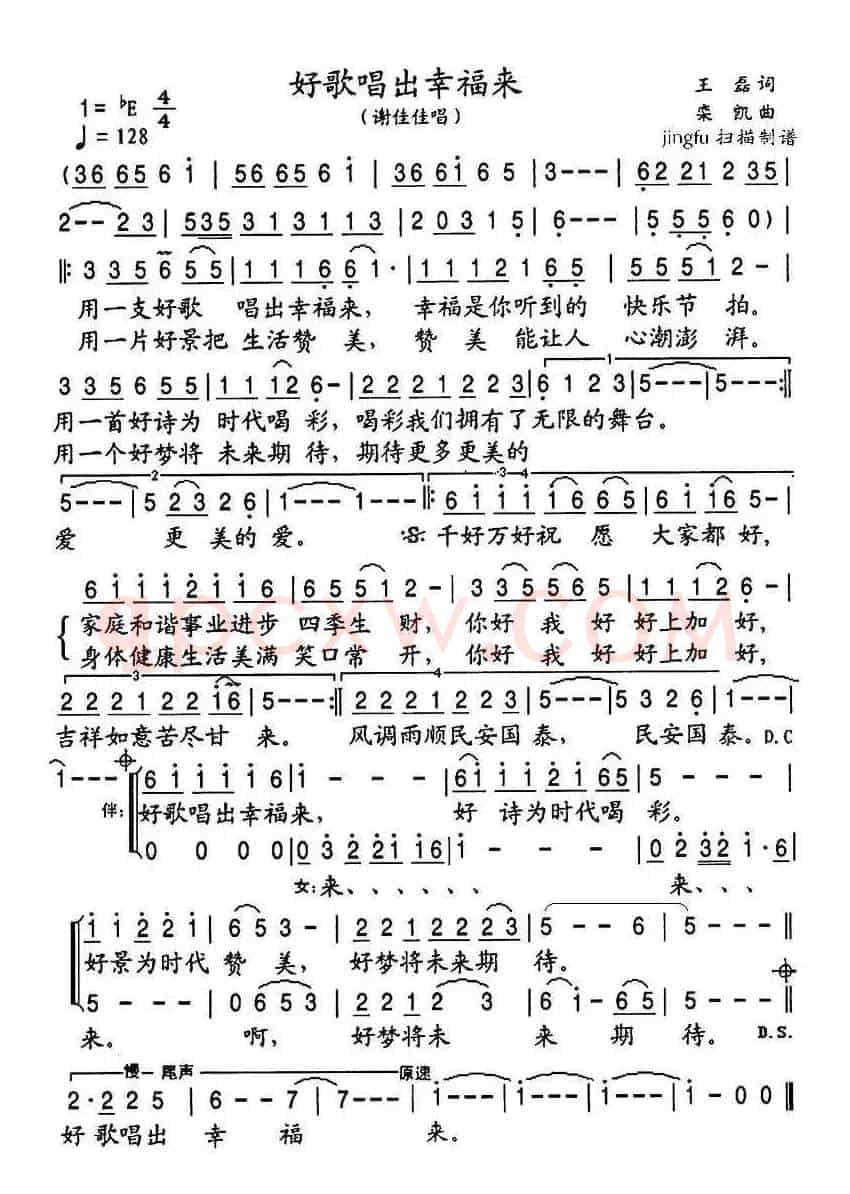 好歌唱出幸福来
(谢佳佳唱)
王磊词
栾凯曲
jingfu 扫描制谱
1= ♭E 4/4
♩= 128
(36 65 6 i | 65 65 6 i | 36 61 6 5 | 3--- | 62 21 2 35 |
2-- 23 | 535 31 31 13 | 2 031 5 | 6--- | 5 55 6 0) |
‖: 33 56 55 | 11 16 61· | 11 12 1 65 | 5 55 1 2- |
用一支好歌 唱出幸福来, 幸福是你听到的 快乐节拍。
用一片好景把 生活赞美, 赞美能让人 心潮澎湃。
33 56 55 | 11 12 6- | 22 21 22 23 | 6 1 2 3 | 5--- | 5--- :‖
用一首好诗为 时代喝彩, 喝彩我们拥有了无限的舞台。
用一个好梦将 未来期待, 期待更多更美的
5--- | 5 23 2 6 | 1--- | 1--- ‖: 6i ii i6 65 | 6 i i6 5- |
爱 更美的爱。 千好万好祝愿 大家都好,
6i ii 2i i6 | 65 51 2- | 33 55 65 | 11 12 6- |
家庭和谐事业进步 四季生财, 你好我好 好上加好,
身体健康生活美满 笑口常开, 你好我好 好上加好,
22 21 22 i6 | 5--- :‖ 22 21 22 23 | 5--- | 5 3 2 6 | 1--- |
吉祥如意苦尽甘来。 风调雨顺民安国泰, 民安国泰。D.C
i--- | 6i ii i6 | i - - - | 6i ii 2i 65 | 5 - - - |
伴: 好歌唱出幸福来, 好诗为时代喝彩。
0 0 0 0 | 03 22 21 16 | i - - - | 02 32 i·6 |
女: 来、、、、、 来、、、
ii 22 i | 6 5 3 - | 22 21 22 23 | 5 - - 6 | 5 - - ‖
好景为时代赞美, 好梦将未来期待。
5 - - - | 06 53 | 22 12 3 | 6 i - 65 | 5 - - - ‖
来。 啊, 好梦将未来期待。 D.S.
慢 - 尾声 原速
2· 2 2 5 | 6 - - 7 | 7 - - - | i - - - | i - - - | i - - - | i - 0 0 ‖
好歌唱出幸福来。